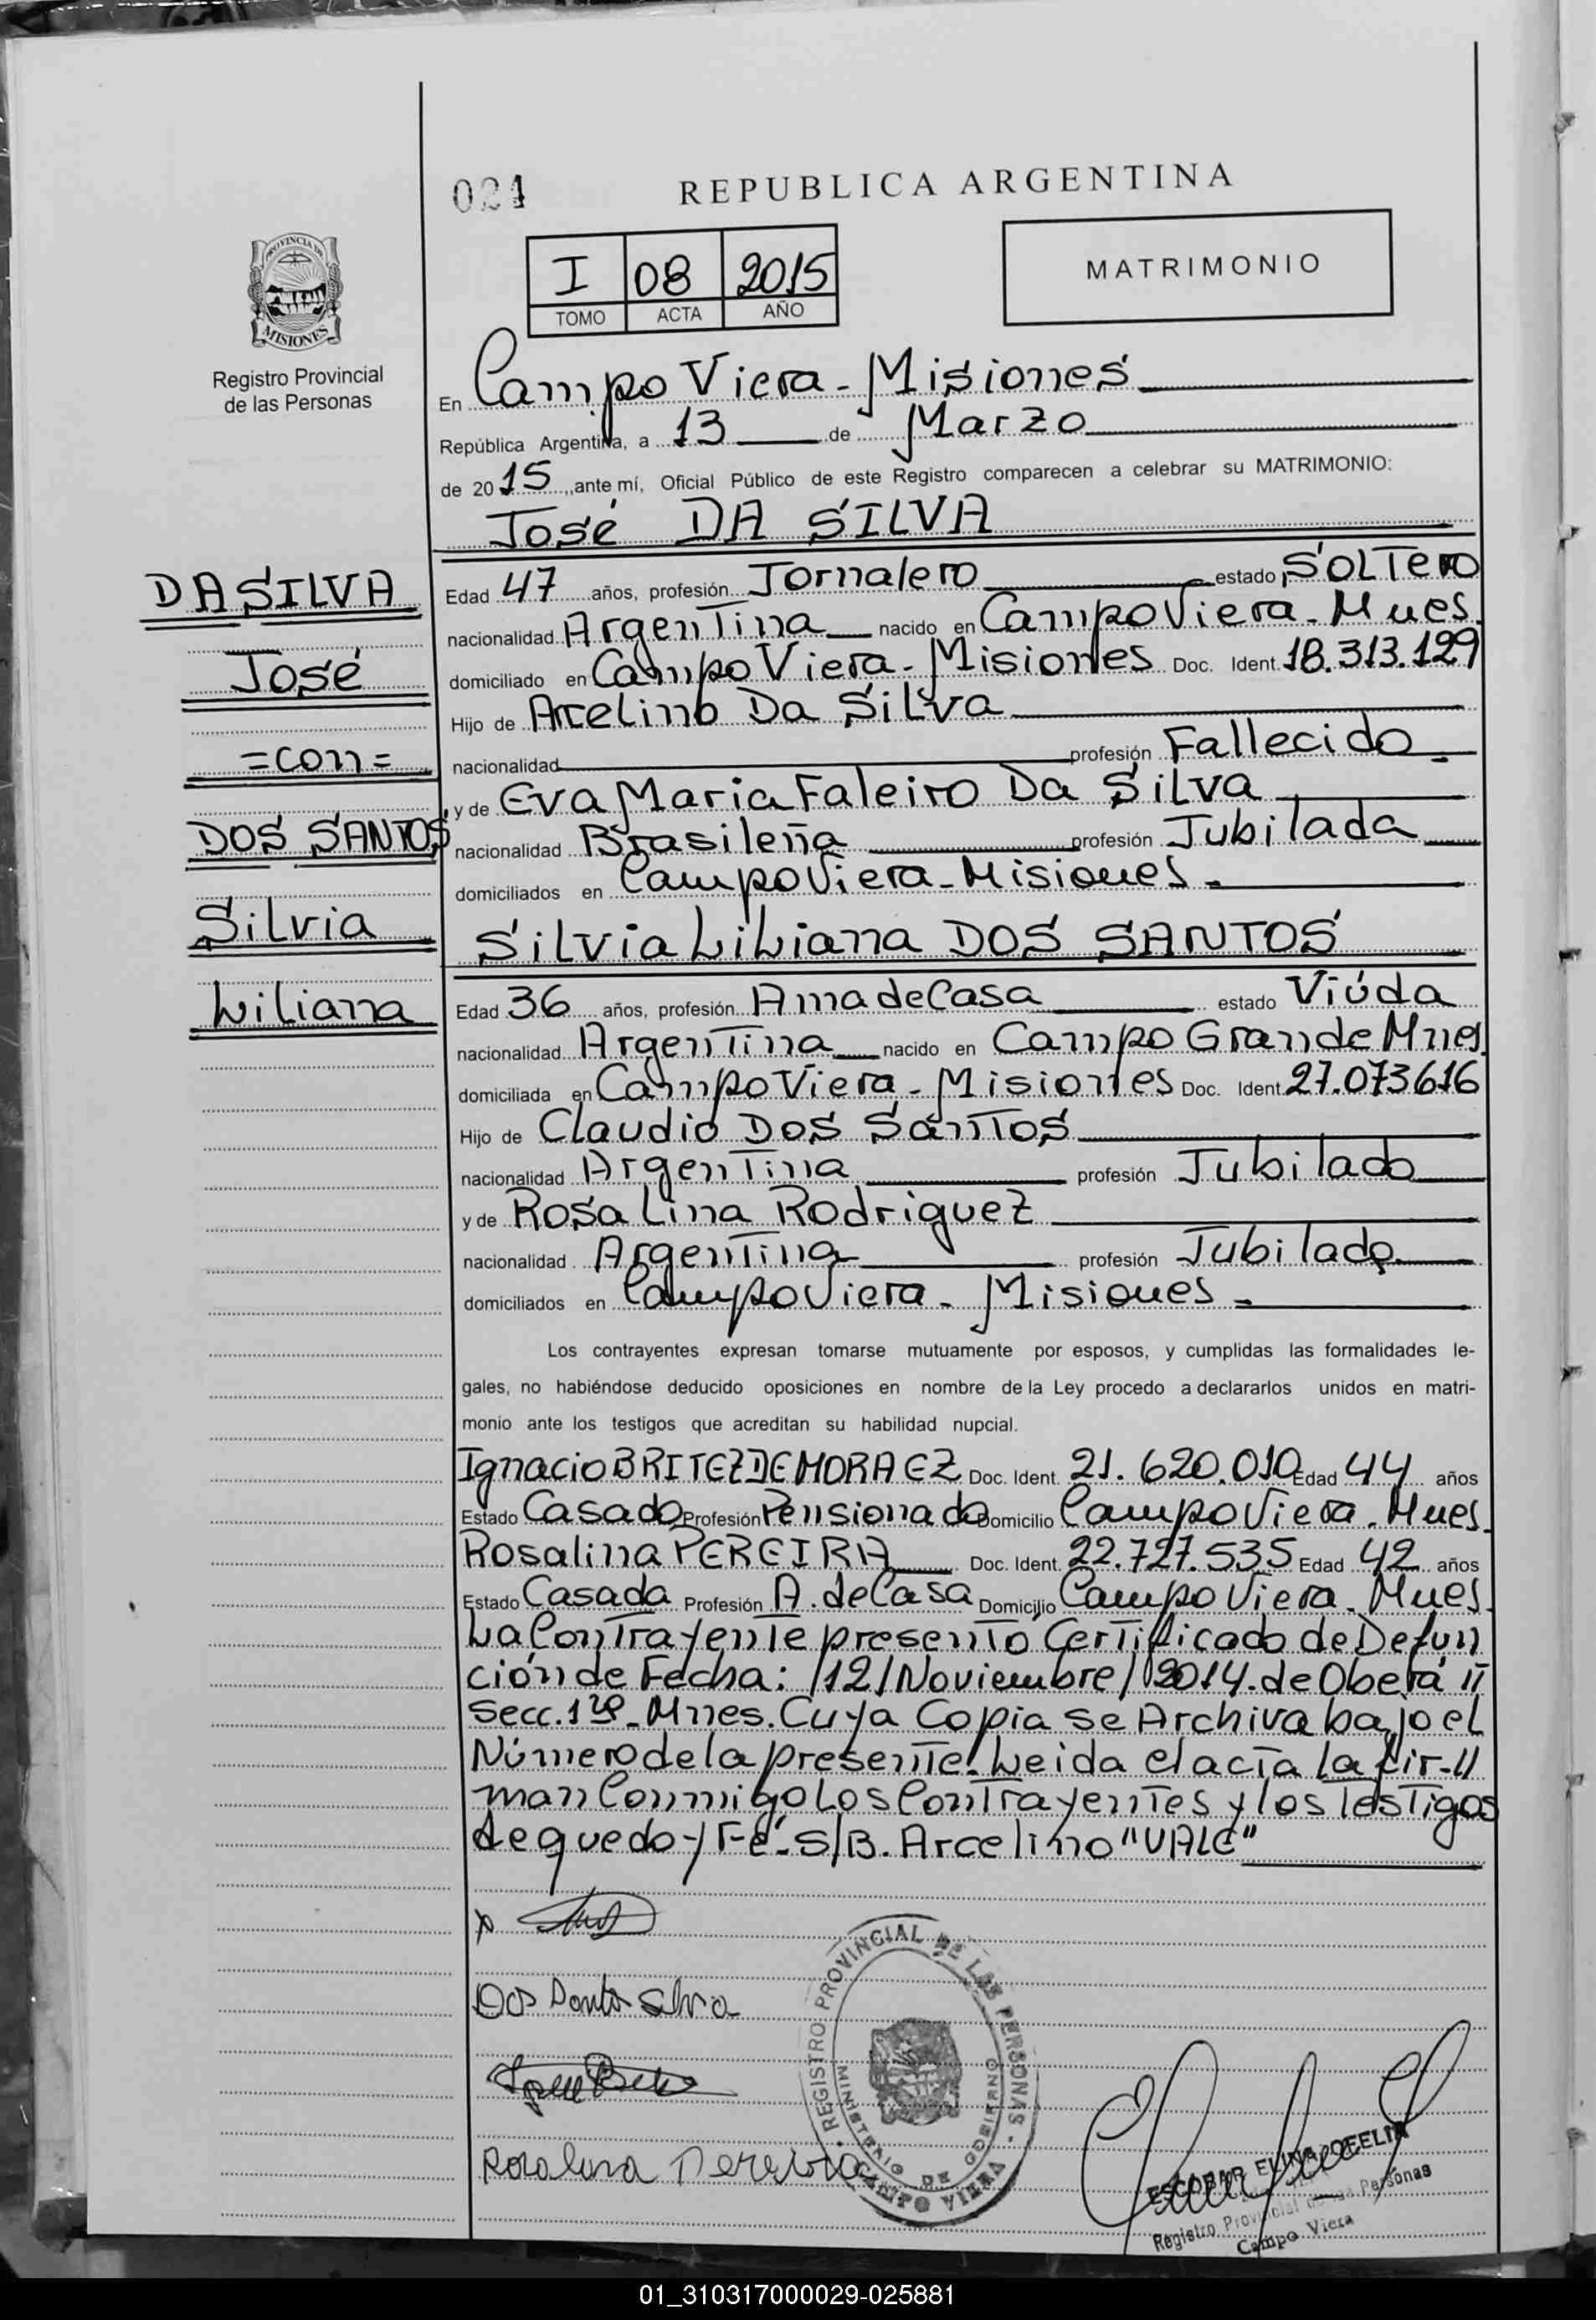 024
REPUBLICA ARGENTINA
PROVINCIA DE
MISIONES
Registro Provincial
de las Personas
I 08 2015
TOMO ACTA AÑO
MATRIMONIO
En Campo Viera - Misiones
República Argentina, a 13 de Marzo
de 2015, ante mí, Oficial Público de este Registro comparecen a celebrar su MATRIMONIO:
José DA SILVA
DA SILVA
José
=con=
DOS SANTOS
Silvia
Liliana
Edad 47 años, profesión Jornalero estado SOLTero
nacionalidad Argentina nacido en Campo Viera - Mnes.
domiciliado en Campo Viera - Misiones Doc. Ident. 18.313.129
Hijo de Arcelino Da Silva
nacionalidad profesión Fallecido.
y de Eva Maria Faleiro Da Silva
nacionalidad Brasileña profesión Jubilada
domiciliados en Campo Viera - Misiones.-
Silvia Liliana DOS SANTOS
Edad 36 años, profesión Ama de Casa estado Viúda
nacionalidad Argentina nacido en Campo Grande Mnes.
domiciliada en Campo Viera - Misiones Doc. Ident. 27.073616
Hijo de Claudio DOS SANTOS
nacionalidad Argentina profesión Jubilado
y de Rosa Lina Rodriguez
nacionalidad Argentina profesión Jubilada
domiciliados en Campo Viera - Misiones -
Los contrayentes expresan tomarse mutuamente por esposos, y cumplidas las formalidades le-
gales, no habiéndose deducido oposiciones en nombre de la Ley procedo a declararlos unidos en matri-
monio ante los testigos que acreditan su habilidad nupcial.
Ignacio BRITEZ DE MORAEZ Doc. Ident. 21.620.010 Edad 44 años
Estado Casado Profesión Pensionado Domicilio Campo Viera - Mnes.
Rosalina PEREIRA Doc. Ident. 22.727.535 Edad 42 años
Estado Casada Profesión A. de Casa Domicilio Campo Viera - Mnes.
La Contrayente presentó Certificado de Defun
ción de Fecha: /12/Noviembre/2014. de Oberá
Secc. 1ra - Mnes. Cuya Copia se Archiva bajo el
Número de la presente. Leida el acta la fir-
man Conmigo Los Contrayentes y los Testigos
de que doy Fé.- S/B. Arcelino "VALE"
Dos Santos Silvia
Rosalina Pereira
REGISTRO PROVINCIAL DE LAS PERSONAS
MINISTERIO DE GOBIERNO
CAMPO VIERA
ESCOBAR ELINA OFELIA
Registro Provincial de las Personas
Campo Viera
01_310317000029-025881